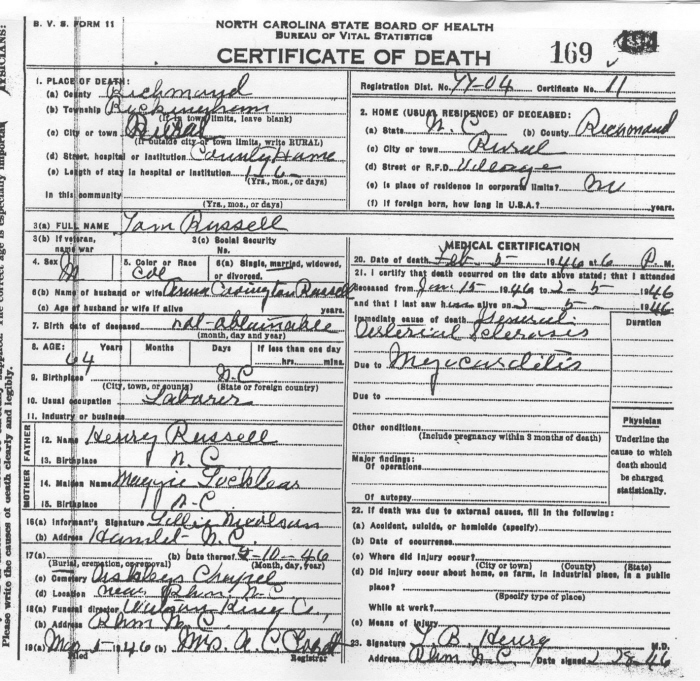 B. V. S. FORM 11
NORTH CAROLINA STATE BOARD OF HEALTH
BUREAU OF VITAL STATISTICS
CERTIFICATE OF DEATH
169
Registration Dist. No. 77-04 Certificate No. 11
1. PLACE OF DEATH:
(a) County Richmond
(b) Township Rockingham
(If in town limits, leave blank)
(c) City or town Rural
(If outside city or town limits, write RURAL)
(d) Street, hospital or institution County Home
(e) Length of stay in hospital or institution
(Yrs., mos., or days)
In this community
(Yrs., mos., or days)
2. HOME (USUAL RESIDENCE) OF DECEASED:
(a) State N. C. (b) County Richmond
(c) City or town Rural
(d) Street or R.F.D. Village
(e) Is place of residence in corporate limits? no
(f) If foreign born, how long in U.S.A.? years.
3(a) FULL NAME Tom Russell
3(b) If veteran, name war
3(c) Social Security No.
4. Sex M
5. Color or Race Col
6(a) Single, married, widowed, or divorced.
6(b) Name of husband or wife Anna Covington Russell
(c) Age of husband or wife if alive years.
7. Birth date of deceased not-obtainable
(month, day and year)
8. AGE: Years Months Days If less than one day
64 hrs. mins.
9. Birthplace N.C
(City, town, or county) (State or foreign country)
10. Usual occupation Laborer
11. Industry or business
FATHER
12. Name Henry Russell
13. Birthplace N.C
MOTHER
14. Maiden Name Maggie Locklear
15. Birthplace N-C
16(a) Informant's Signature Lillie
(b) Address Hamlet- N.C.
17(a) (b) Date thereof 2-10-46
(Burial, cremation, or removal) (Month, day, year)
(c) Cemetery Chapel
(d) Location near Rhm N-C
18(a) Funeral director Watson King Co,
(b) Address Rhm N.C.
19(a) Mar 1946 (b) Mrs. A. C.
Filed Registrar
MEDICAL CERTIFICATION
20. Date of death Feb 5 1946 at 6 P. M.
21. I certify that death occurred on the date above stated; that I attended
deceased from Jan 15- 1946 to 2-5- 1946
and that I last saw him alive on 2-5- 1946
Immediate cause of death General
Arterial Sclerosis
Duration
Due to Myocarditis
Due to
Other conditions
(Include pregnancy within 3 months of death)
Major findings:
Of operations
Of autopsy
Physician
Underline the cause to which death should be charged statistically.
22. If death was due to external causes, fill in the following:
(a) Accident, suicide, or homicide (specify)
(b) Date of occurrence
(c) Where did injury occur?
(City or town) (County) (State)
(d) Did injury occur about home, on farm, in industrial place, in a public
place?
(Specify type of place)
While at work?
(e) Means of injury
23. Signature L. B. Henry M.D.
Address Rhm N.C. Date signed 2-28-46
Please write the causes of death clearly and legibly.